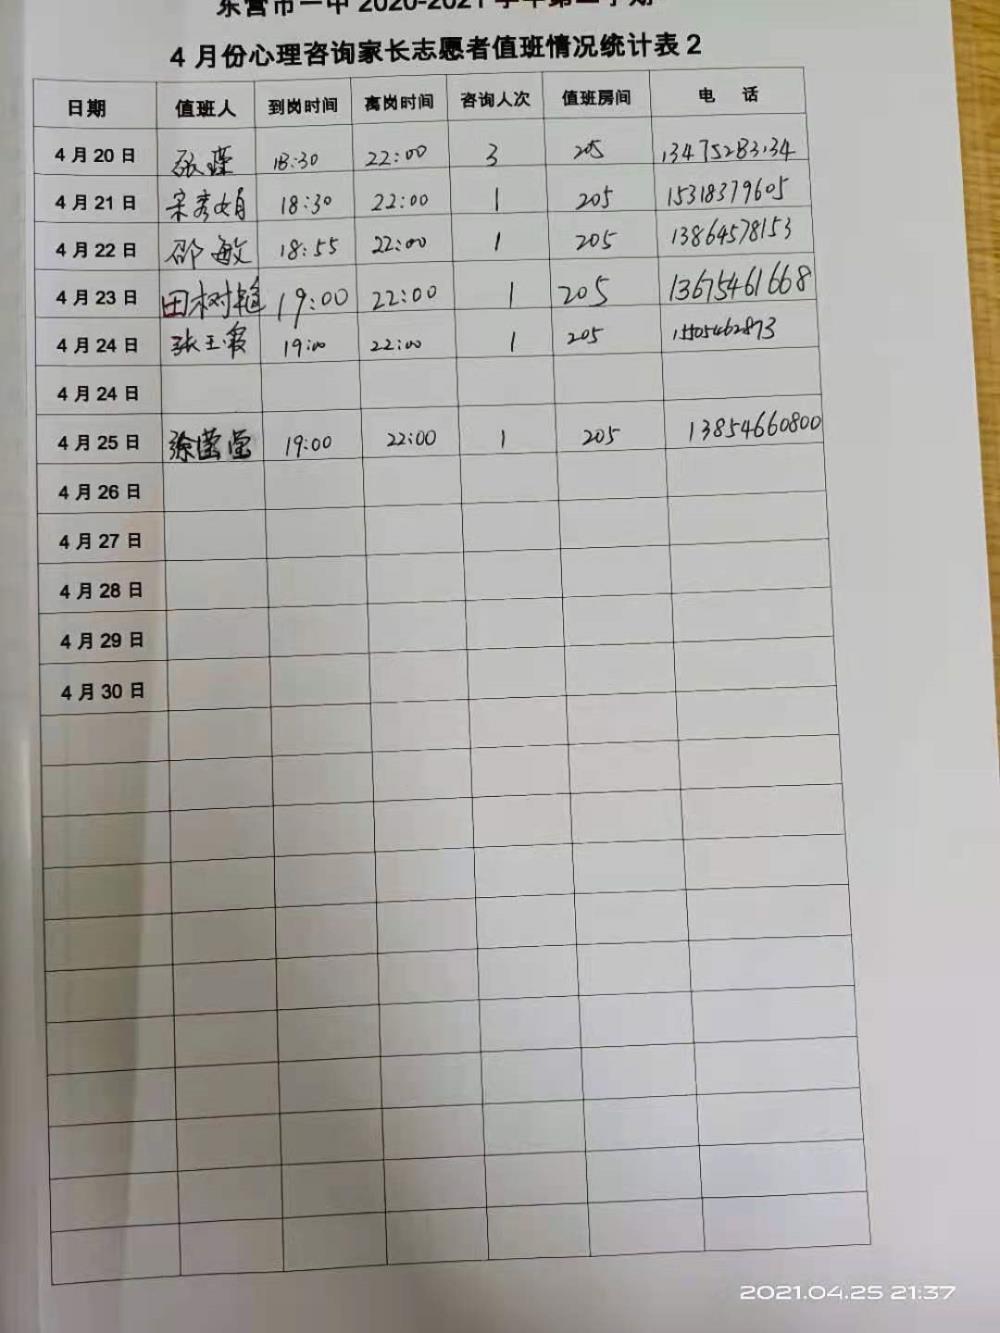 东营市一中 2020-2021 学年第二学期
4 月份心理咨询家长志愿者值班情况统计表 2
日期 值班人 到岗时间 离岗时间 咨询人次 值班房间 电 话
4 月 20 日 张 18:30 22:00 3 205 13475283134
4 月 21 日 宋秀娟 18:30 22:00 1 205 15318379605
4 月 22 日 邵敏 18:55 22:00 1 205 13864578153
4 月 23 日 田树 19:00 22:00 1 205 13675461668
4 月 24 日 张玉霞 19:00 22:00 1 205 15505462893
4 月 24 日
4 月 25 日 徐莹莹 19:00 22:00 1 205 13854660800
4 月 26 日
4 月 27 日
4 月 28 日
4 月 29 日
4 月 30 日
2021.04.25 21:37